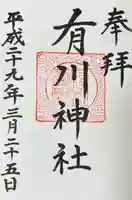 奉拝
有川神社
平成二十九年三月二十五日